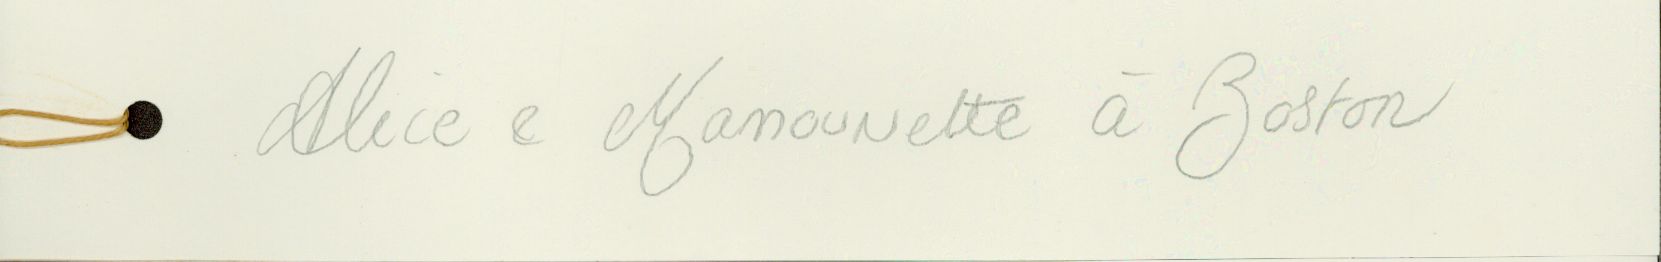 Alice e Manounette à Boston